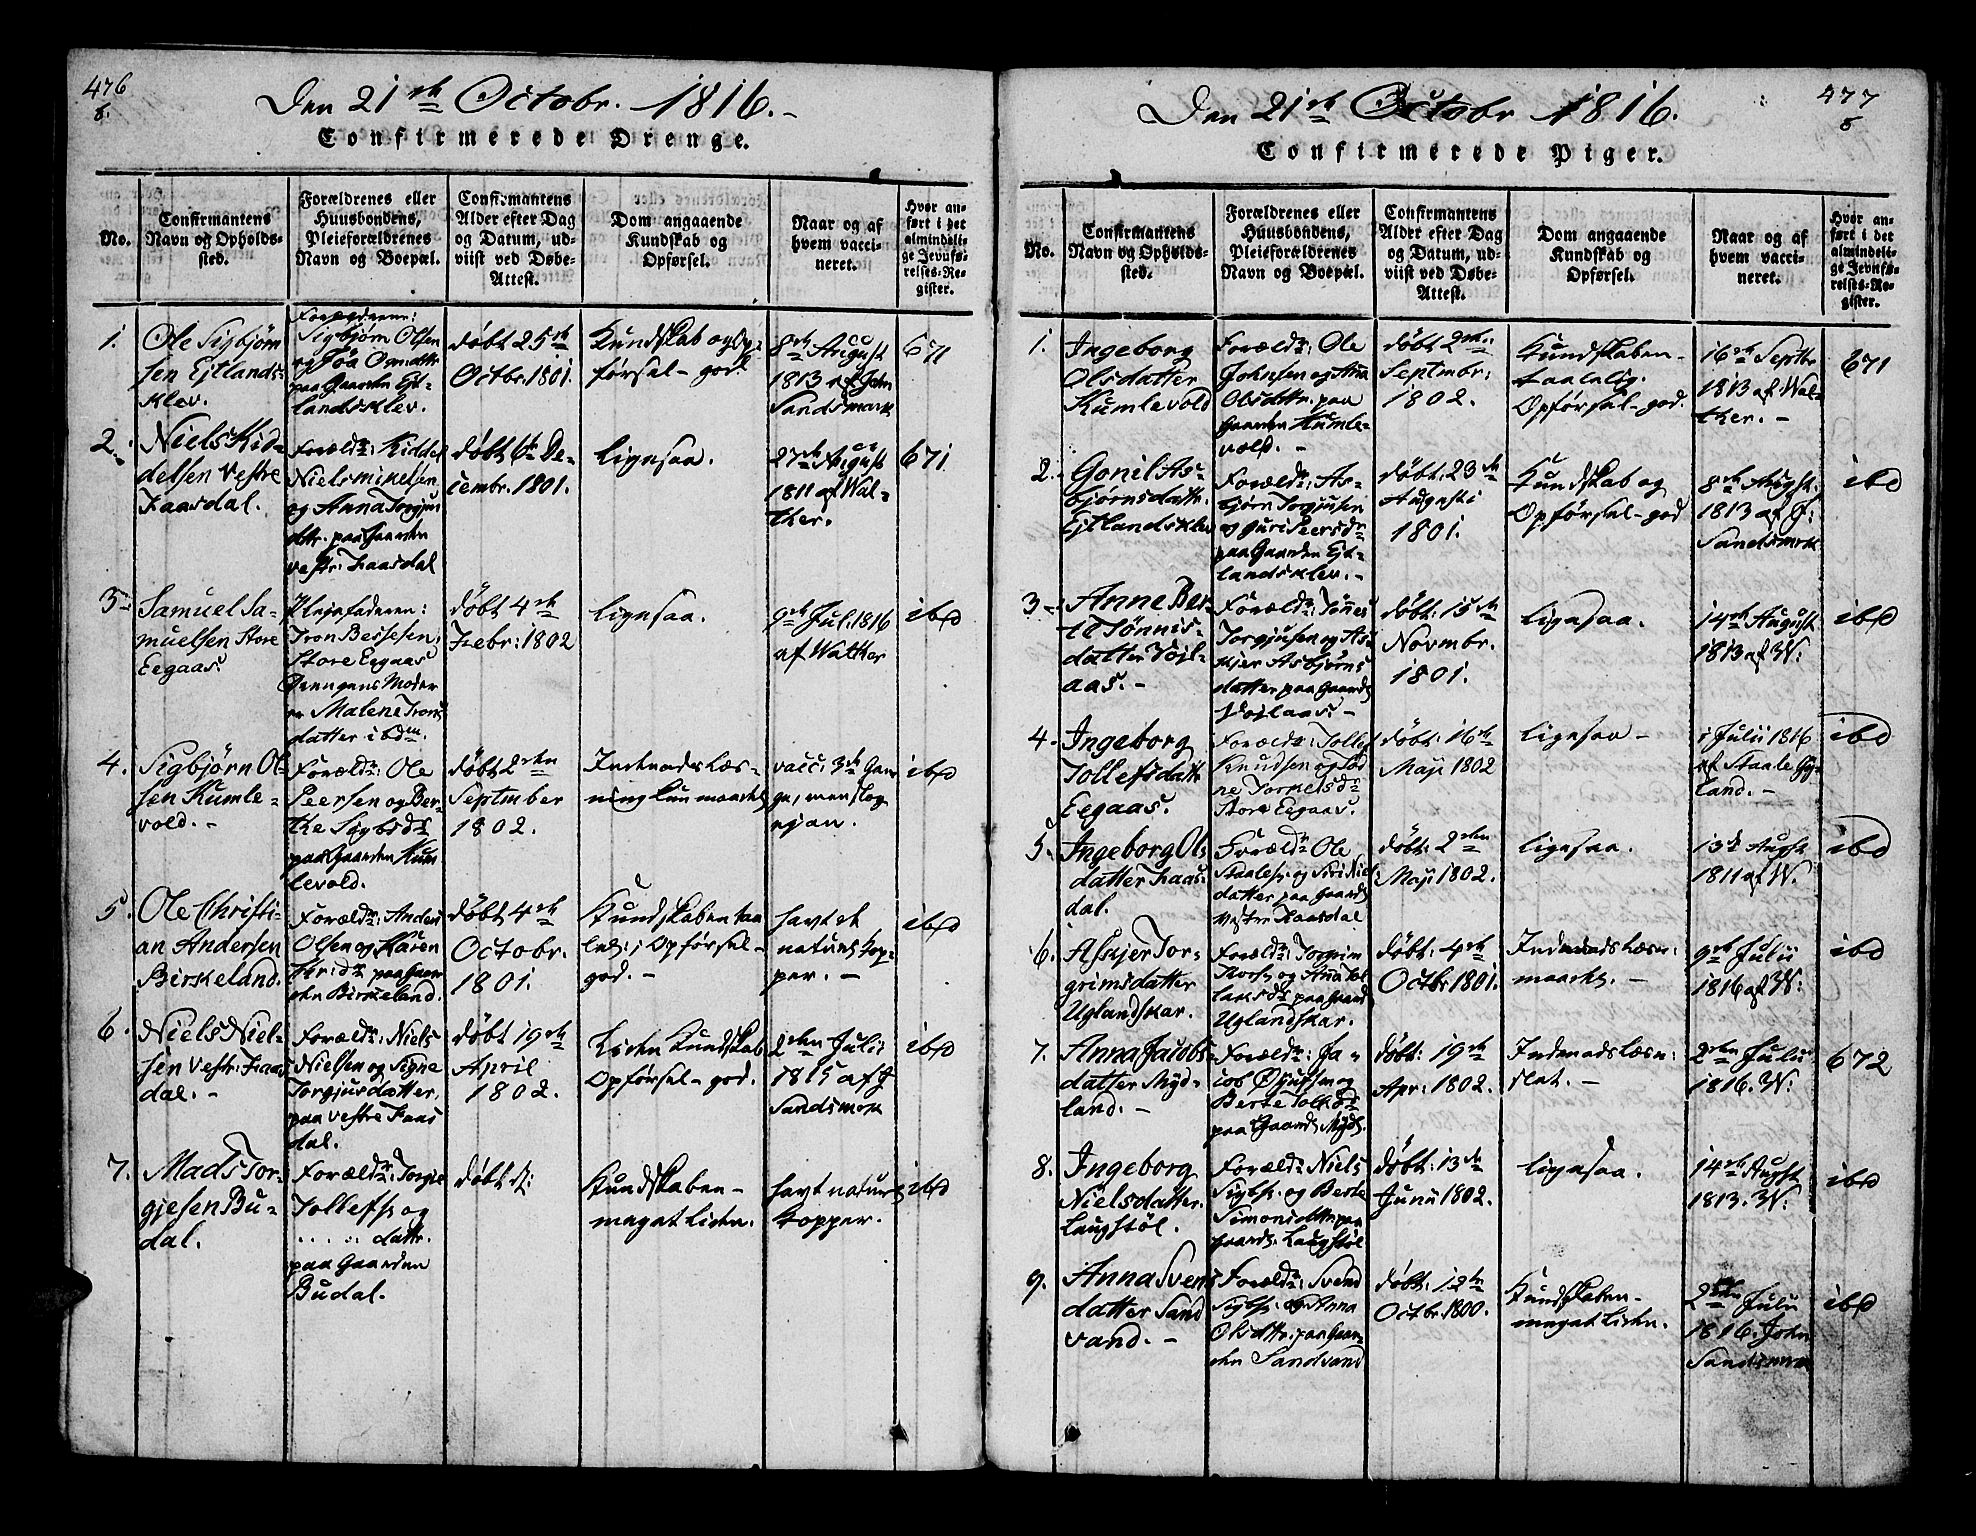 476
8.
Den 21de Octobr. 1816.-
Confirmerede Drenge.
No.
Confirmantens
Navn og Opholds-
sted.
Forældrenes eller
Huusbondens,
Pleieforældrenes
Navn og Boepæl.
Confirmantens
Alder efter Dag
og Datum, ud-
viist ved Døbe-
Attest.
Dom angaaende
Kundskab og
Opførsel.
Naar og af
hvem vacci-
neret.
Hvor an-
ført i det
almindeli-
ge Jevnfø-
relses-Re-
gister.
1.
Ole Sigbjørn
sen Ejtlands-
klev.
Forældrene:
Sigbjørn Olsen
paa Gaarden Ejt-
landsklev.
døbt 25de
Octbr. 1801.
Kundskab og Op-
førsel - god
8de August
1813 af John
Sandsmark
671
2.
Niels Kid-
delsen Vestre
Faasdal.
Foreld: Kiddel
Nielsmikelsen
og Anna Torgjus
dttr. paa Gaarden
vestr: Faasdal
døbt 6te De-
cembr. 1801.
ligesaa.
27de August
1811 af Wal-
ther.
671
3
Samuel Sa-
muelsen Store
Eegaas.
Plejefaderen:
Tron Bessesen,
Store Eegaas
Drengens Moder
er Malene Trons
datter ibdm.
døbt 4de
Febr: 1802
ligesaa.
9de Jul. 1816
af Walther
ibd
4.
Sigbjørn Ol-
sen Kumle-
vold. -
Foræld: Ole
Peersen og Ber-
the Sigbsdr
paa Gaarden Kum
levold.
døbt 2den
September
1802.
Indenadslæs-
ning kun maadel.
vacc: 3de Gan
ge, men slog
ejan.
ibd
5.
Ole Christi-
an Andersen
Birkeland.
Foræld: Anders
Olsen og Karen
paa Gaar
den Birkeland.
døbt 4de
Octobr.
1801.
Kundskaben taa
lel:; Opførsel-
god. -
havt de
naturl. Kop-
per. -
ibd
6.
Niels Niel-
sen Vestr: Faas
dal. -
Foræld: Niels
Nielsen og Signe
Torgjusdatter,
paa Vestre Faas
dal.
døbt 19de
April
1802.
Liden Kundskab
Opførsel - god.
2den Julii
1815 af J
Sandsmrk
ibd
7.
Mads Tor-
gjesen Bu-
dal.
Foræld: Torgie
Tollefs. og
. . . . . dattr.
paa Gaarden
Budal.
døbt d:
Kundskaben-
meget liden.
havt naturl
Kopper.
ibd
477
8
Den 21de Octobr 1816.
Confirmerede Piger.
No.
Confirmantens
Navn og Opholds-
sted.
Forældrenes eller
Huusbondens,
Pleieforældrenes
Navn og Boepæl.
Confirmantens
Alder efter Dag
og Datum, ud-
viist ved Døbe-
Attest.
Dom angaaende
Kundskab og
Opførsel.
Naar og af
hvem vacci-
neret.
Hvor an-
ført i det
almindeli-
ge Jevnfø-
relses-Re-
gister.
1.
Ingeborg
Olsdatter
Kumlevold
Foræld: Ole
Johnsen og Anna
Olsdttr. paa
Gaarden Kumle-
vold. -
døbt 2den
Septmbr:
1802.
Kundskaben-
taalelig.
Opførsel - god.
16de Septbr
1813 af Wal-
ther. -
671
2.
Gonil As-
bjørnsdattr.
Ejtlandsklev
Foræld: As-
bjørn Torgjusen
og Guri Peersdr
paa Gaarden Ejt-
landsklev. -
døbt: 23de
Augusti
1801.
Kundskab og
Opførsel - god
8de Augst.
1813 af J:
Sandsmrk
ibd
3
Anne Ber-
te Tønnis-
datter Vojl-
aas. -
Foræld: Tønnes
Torgjusen og As-
kjer Asbjørns
datter paa Gaard
Vojlaas. -
døbt: 15de
Novmbr.
1801.
ligesaa.
14de August
1813 af W:
ibd
4.
Ingeborg
Tollefsdattr
Eegaas.
Foræld: Tollef
Knudsen og
Torkelsdr
Store Eegaas.
døbt: 16de
Maji 1802
ligesaa -
i Julii 1816
af Staale Gy-
land. -
ibd
5.
Ingeborg Ols
datter Faas
dal.
Foræld: Ole
Staales. og Siri Niel
datter paa Gaard
Vestre Faasdal
døbt: 2den
Maji 1802.
ligesaa.
13de Augst
1811 af W.
ibd
6.
Askjer Tor-
grimsdatter
Uglandskar.
Foræld: Torgrim
og Anna
paa Gaard
Uglandskar.
døbt: 4de
Octbr 1801.
Indenadslæsn:
maadel. -
9de Julii
1816 af W:
ibd
7.
Anna Jacobs-
datter Myd-
land. -
Foræld: Ja-
cob og
Berte
paa Gaard. Mydl.
døbt: 19de
Apr: 1802.
Indenadslæsn:
slet. -
2den Julii
1816. W:
672
8.
Ingeborg
Nielsdatter
Laugstøl.
Foræld: Niels
Sigbs. og Berte
Simonsdttr. paa
Gaard. Laugstøl
døbt: 13de
Junii 1802.
ligesaa.
14de Augst
1813. W:
ibd
9.
Anna Svens
datter Sand
vand. -
Foræld: Svend
Sigbs: og Anna
Olsdttr. paa Gaar-
den Sandvand
døbt: 12te
Octbr. 1800.
Kundskaben-
meget liden.
2den Julii
1816. John
Sandsmrk
ibd